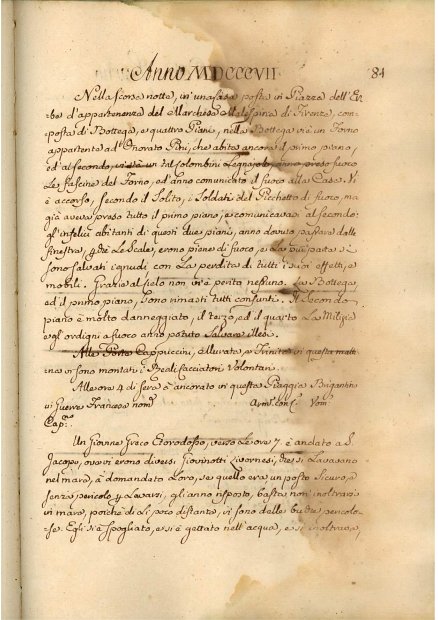 Anno MDCCCVII
84
Nella scorsa notte, in una Casa posta in Piazza dell'Er-
be d'appartenenza del Marchese Malespina di Firenze, com-
posta di Bottega, e quattro Piani, nella Bottega vi è un Forno
appartente a Onorato Pini, che abita ancora il primo piano,
ed al secondo, vi stà un tal Colombini Legnajolo, anno preso fuoco
Le fascine del Forno, ed anno comunicato il fuoco alla Casa. Vi
è accorso, secondo il Solito, i Soldati del Picchetto di fuoco, ma
già aveva preso tutto il primo piano, e comunicava al secondo:
gl'infelici abitanti di questi due piani, anno dovuto passare dalle
finestre, Le Scale, erono piene di fuoco, e La più parte si
sono Salvati ignudi con La perdita di tutti i suoi effetti, e
mobili. Grazie al Cielo non vi è perito nessuno. La Bottega,
ed il primo piano, sono rimasti tutti consunti. Il Secondo
piano è molto danneggiato, il terzo, ed il quarto La Milizia
e gl'ordigni a fuoco anno potuto Salvare illesi.
Alle Porte Cappuccini, e Trinita in questa matt-
ina vi sono montati i Reali facciatori Volontari.
Alle ore 4 di sera è ancorato in questa Piaggia Brigantino
di Guerra Francese nom.
Cap.
Un Giovine Greco verso Le ore 7 è andato a S.
Jacopo, ove vi erono diversi Giovinotti Livornesi, che si Lavavano
nel mare, à domandato Loro, se quello era un posto Sicuro, e
senza pericolo Lavarsi, gli anno risposto, basta non inoltrarsi
in mare, poiche di Li poco distante, vi sono delle buche pericolo-
se. Egli si è spogliato, e si è gettato nell'acqua, e si inoltrava,